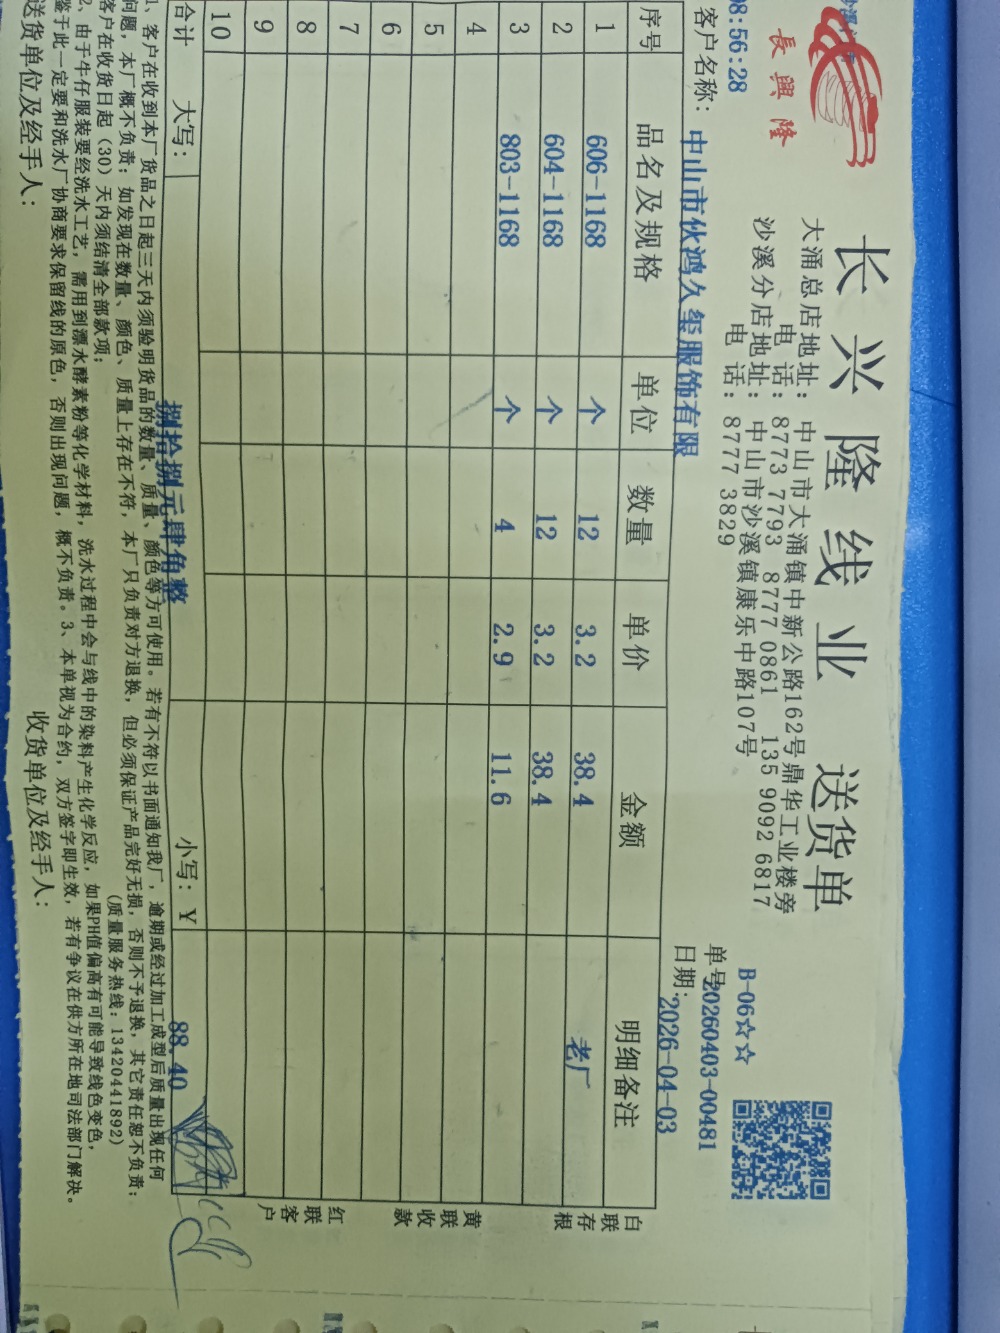 長興隆
长兴隆线业 送货单
大涌总店地址：中山市大涌镇中新公路162号鼎华工业楼旁
电 话：8773 7793 8777 0861 135 9092 6817
沙溪分店地址：中山市沙溪镇康乐中路107号
电 话：8777 3829
B-06☆☆
08:56:28
单号20260403-00481
客户名称：中山市伙鸿久玺服饰有限
日期：2026-04-03
序号 品名及规格 单位 数量 单价 金额 明细备注
1 606-1168 个 12 3.2 38.4 老厂
2 604-1168 个 12 3.2 38.4
3 803-1168 个 4 2.9 11.6
4
5
6
7
8
9
10
合计 大写：捌拾捌元肆角整 小写：¥ 88.40
白联存根
黄联收款
红联客户
1、客户在收到本厂货品之日起三天内须验明货品的数量、质量、颜色等方可使用。若有不符以书面通知我厂，逾期或经过加工成型后质量出现任何
问题，本厂概不负责；如发现在数量、颜色、质量上存在不符，本厂只负责对方退换，但必须保证产品完好无损，否则不予退换，其它责任恕不负责；
客户在收货日起（30）天内须结清全部款项； （质量服务热线：13420441892）
2、由于牛仔服装要经洗水工艺，需用到漂水酵素粉等化学材料，洗水过程中会与线中的染料产生化学反应，如果PH值偏高有可能导致线色变色，
鉴于此一定要和洗水厂协商要求保留线的原色，否则出现问题，概不负责。3、本单视为合约，双方签字即生效，若有争议在供方所在地司法部门解决。
送货单位及经手人： 收货单位及经手人：